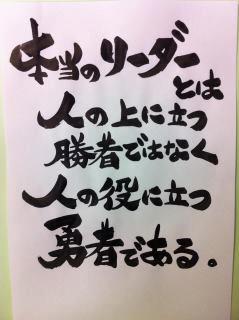 本当のリーダー
とは
人の上に立つ
勝者ではなく
人の役に立つ
勇者である。